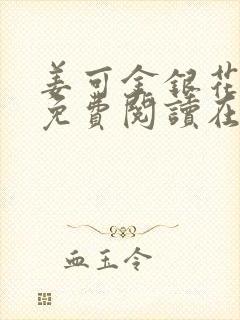 姜可金銀花
免費閱讀在
血玉令